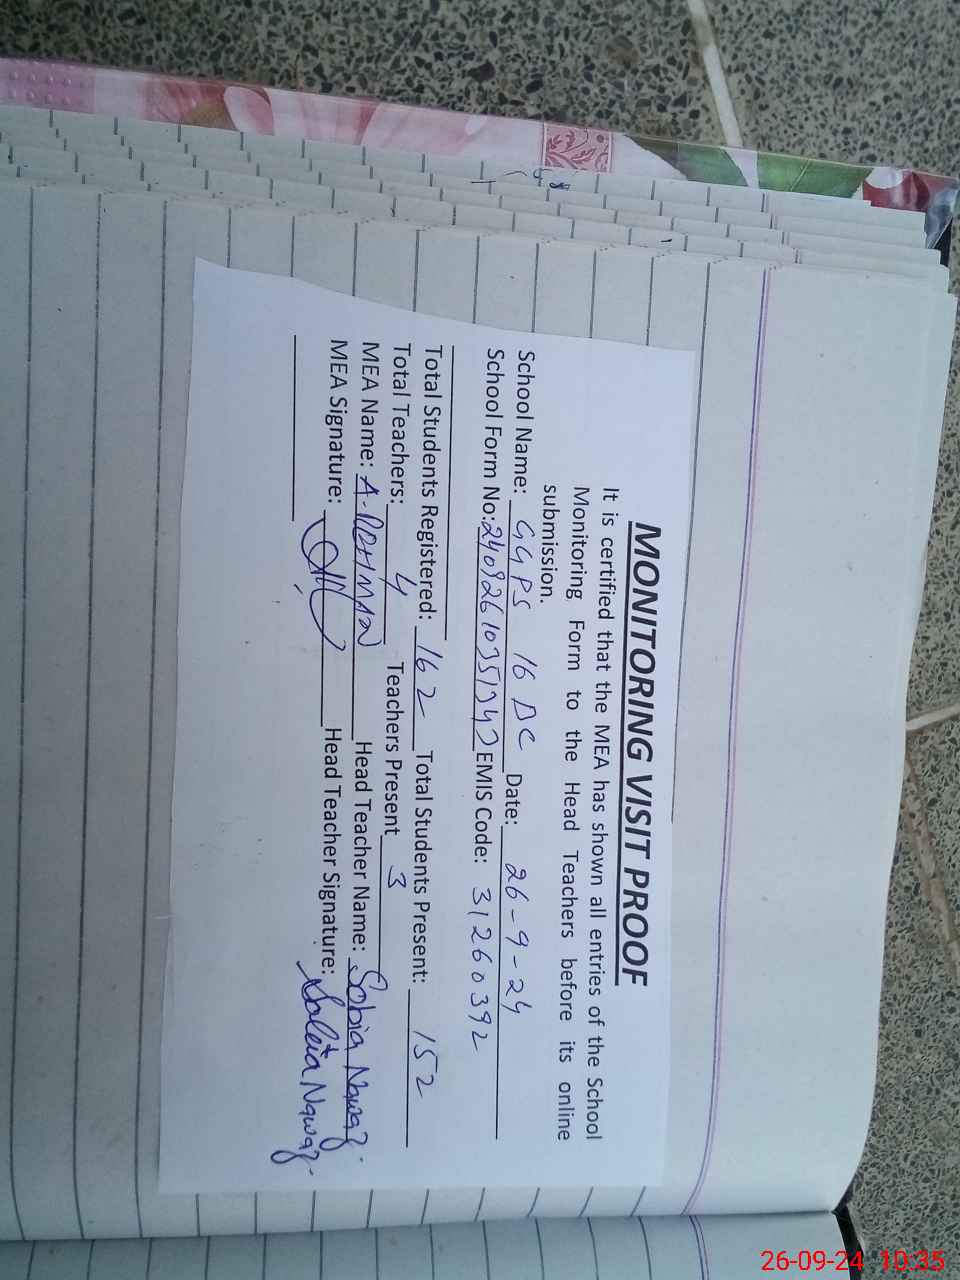 MONITORING VISIT PROOF
It is certified that the MEA has shown all entries of the School
Monitoring Form to the Head Teachers before its online
submission.
School Name: GGPS 16 DC Date: 26-9-24
School Form No: EMIS Code: 31260392
Total Students Registered: 162 Total Students Present: 152
Total Teachers: 4 Teachers Present 3
MEA Name: A-REHMAN Head Teacher Name: Sobia Nawaz.
MEA Signature: Head Teacher Signature: Nawaz.
26-09-24 10:35